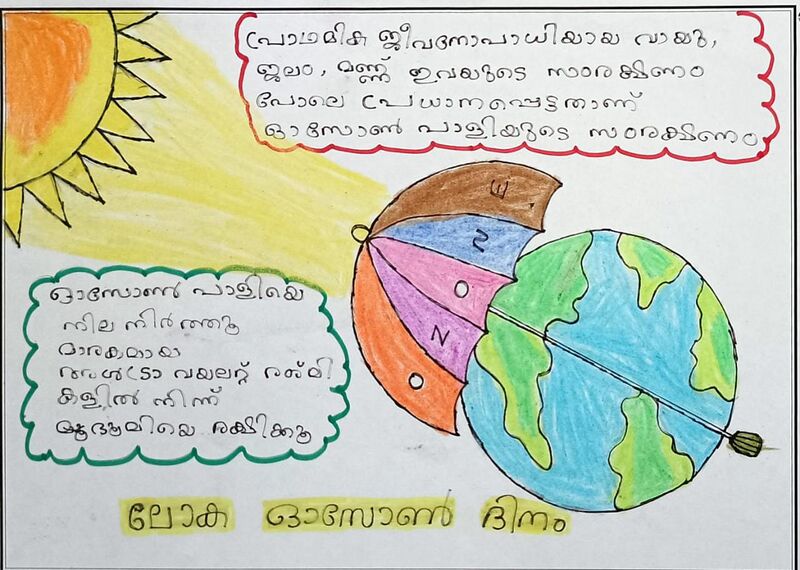 പ്രാഥമിക ജീവനോപാധിയായ വായു,
ജലം, മണ്ണ് ഇവയുടെ സംരക്ഷണം
പോലെ പ്രധാനപ്പെട്ടതാണ്
ഓസോൺ പാളിയുടെ സംരക്ഷണം
OZONE
ഓസോൺ പാളിയെ
നില നിർത്തൂ
മാരകമായ
അൾട്രാ വയലറ്റ് രശ്മി
കളിൽ നിന്ന്
ഭൂമിയെ രക്ഷിക്കൂ
ലോക ഓസോൺ ദിനം